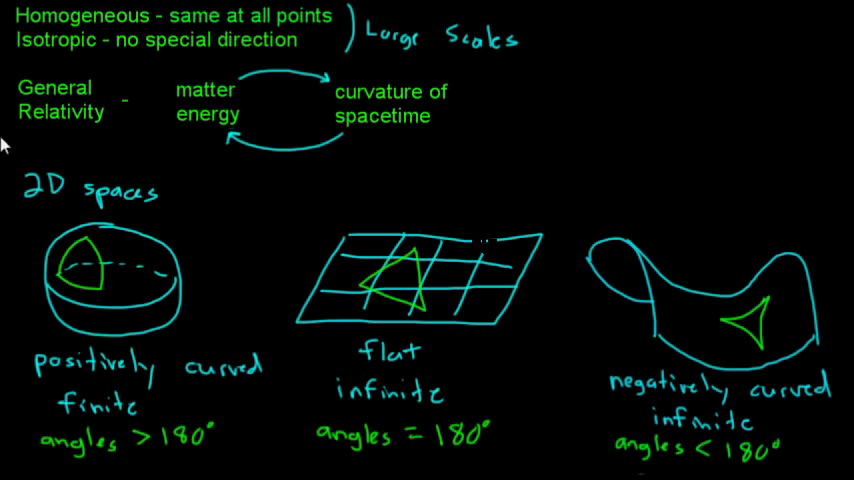 Homogeneous - same at all points
Isotropic - no special direction
Large Scales
General Relativity -
matter
energy
curvature of
spacetime
2D spaces
positively curved
finite
angles > 180°
flat
infinite
angles = 180°
negatively curved
infinite
angles < 180°